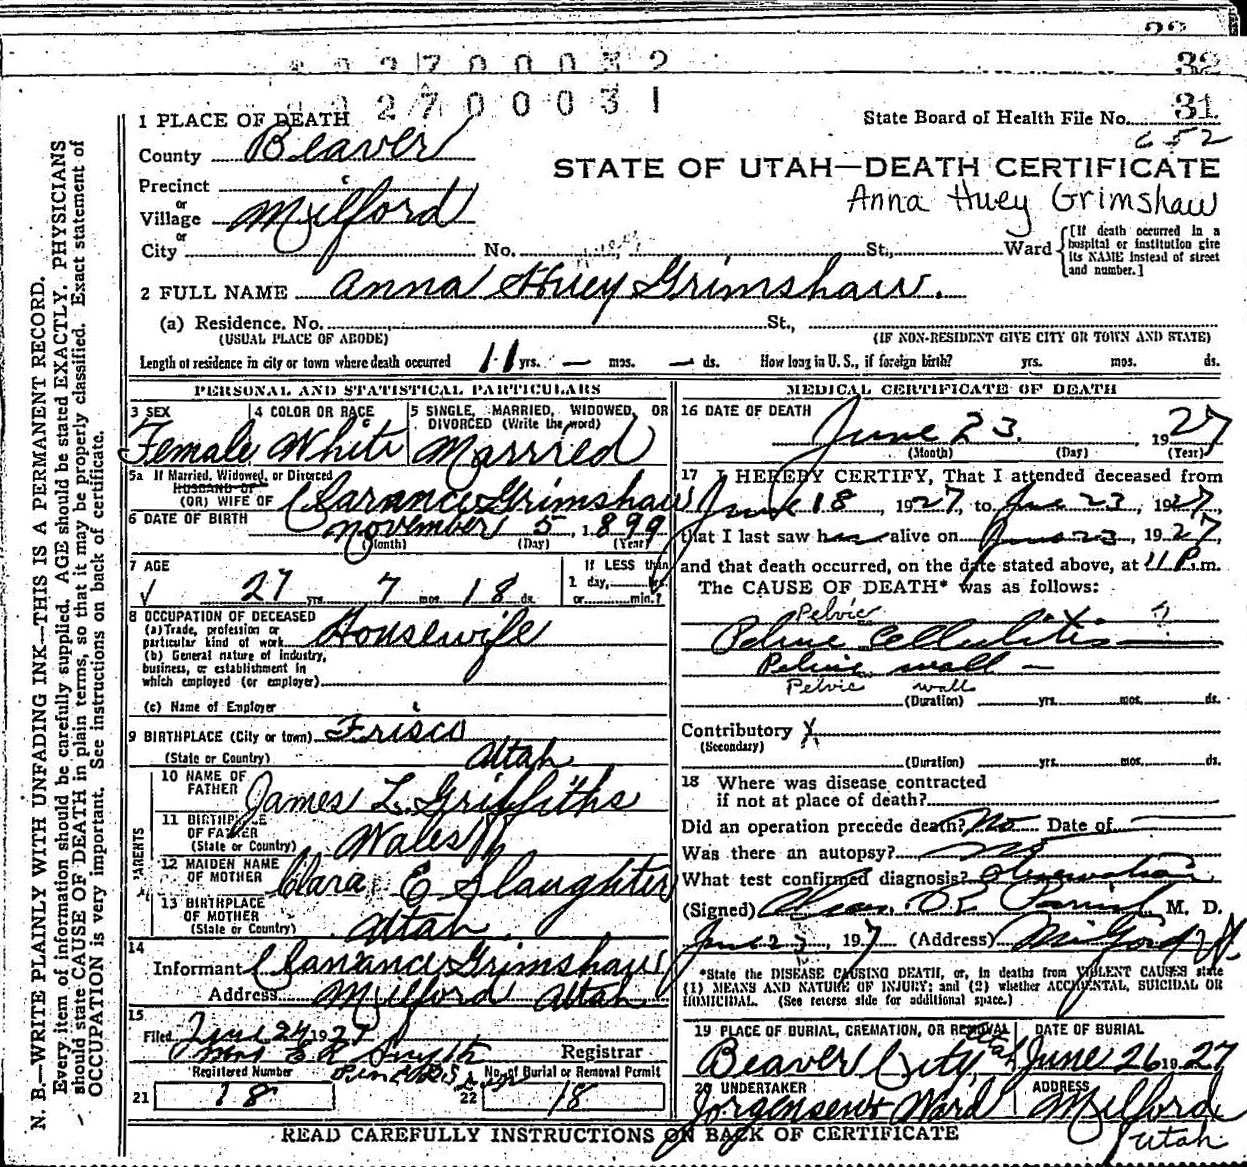 32
32700032
92700031
31
652
1 PLACE OF DEATH
State Board of Health File No.
County Beaver
STATE OF UTAH—DEATH CERTIFICATE
Anna Huey Grimshaw
Precinct
or
Village Milford
or
City No. St., Ward
[If death occurred in a hospital or institution give its NAME instead of street and number.]
Huey
2 FULL NAME Anna Huey Grimshaw.
(a) Residence. No. St.,
(USUAL PLACE OF ABODE) (IF NON-RESIDENT GIVE CITY OR TOWN AND STATE)
Length of residence in city or town where death occurred 11 yrs. — mos. — ds. How long in U. S., if foreign birth? yrs. mos. ds.
PERSONAL AND STATISTICAL PARTICULARS
3 SEX 4 COLOR OR RACE 5 SINGLE, MARRIED, WIDOWED, OR DIVORCED (Write the word)
Female White Married
5a If Married, Widowed, or Divorced
HUSBAND OF
(OR) WIFE OF Clarance Grimshaw
6 DATE OF BIRTH November 5, 1899
(Month) (Day) (Year)
7 AGE If LESS than
1 day, hrs.
27 yrs. 7 mos. 18 ds. or min.?
8 OCCUPATION OF DECEASED
(a) Trade, profession or
particular kind of work Housewife
(b) General nature of industry,
business, or establishment in
which employed (or employer)
(c) Name of Employer
9 BIRTHPLACE (City or town) Frisco
(State or Country) Utah
PARENTS
10 NAME OF
FATHER James L. Griffiths
11 BIRTHPLACE
OF FATHER
(State or Country) Wales
12 MAIDEN NAME
OF MOTHER Clara E Slaughter
13 BIRTHPLACE
OF MOTHER
(State or Country) Utah
14
Informant Clarance Grimshaw
Address Milford Utah
15
Filed June 24 1927
Mrs E R Smyth Registrar
Registered Number No. of Burial or Removal Permit
21 18 22 18
MEDICAL CERTIFICATE OF DEATH
16 DATE OF DEATH
June 23, 1927
(Month) (Day) (Year)
17 I HEREBY CERTIFY, That I attended deceased from
June 18, 1927, to June 23, 1927,
that I last saw her alive on June 23, 1927,
and that death occurred, on the date stated above, at 11 P.m.
The CAUSE OF DEATH* was as follows:
Pelvic ?
Pelvic Cellulitis
Pelvic wall —
Pelvic wall
(Duration) yrs. mos. ds.
Contributory X
(Secondary)
(Duration) yrs. mos. ds.
18 Where was disease contracted
if not at place of death?
Did an operation precede death? No Date of
Was there an autopsy? No
What test confirmed diagnosis? Observation
(Signed) M. D.
June 23, 1927 (Address) Milford Ut
*State the DISEASE CAUSING DEATH, or, in deaths from VIOLENT CAUSES state
(1) MEANS AND NATURE OF INJURY; and (2) whether ACCIDENTAL, SUICIDAL OR
HOMICIDAL. (See reverse side for additional space.)
19 PLACE OF BURIAL, CREMATION, OR REMOVAL DATE OF BURIAL
Beaver City, Utah June 26 1927
20 UNDERTAKER ADDRESS
Jorgensen & Ward Milford
Utah
READ CAREFULLY INSTRUCTIONS ON BACK OF CERTIFICATE
N. B.—WRITE PLAINLY WITH UNFADING INK—THIS IS A PERMANENT RECORD.
Every item of information should be carefully supplied. AGE should be stated EXACTLY. PHYSICIANS
should state CAUSE OF DEATH in plain terms, so that it may be properly classified. Exact statement of
OCCUPATION is very important. See instructions on back of certificate.